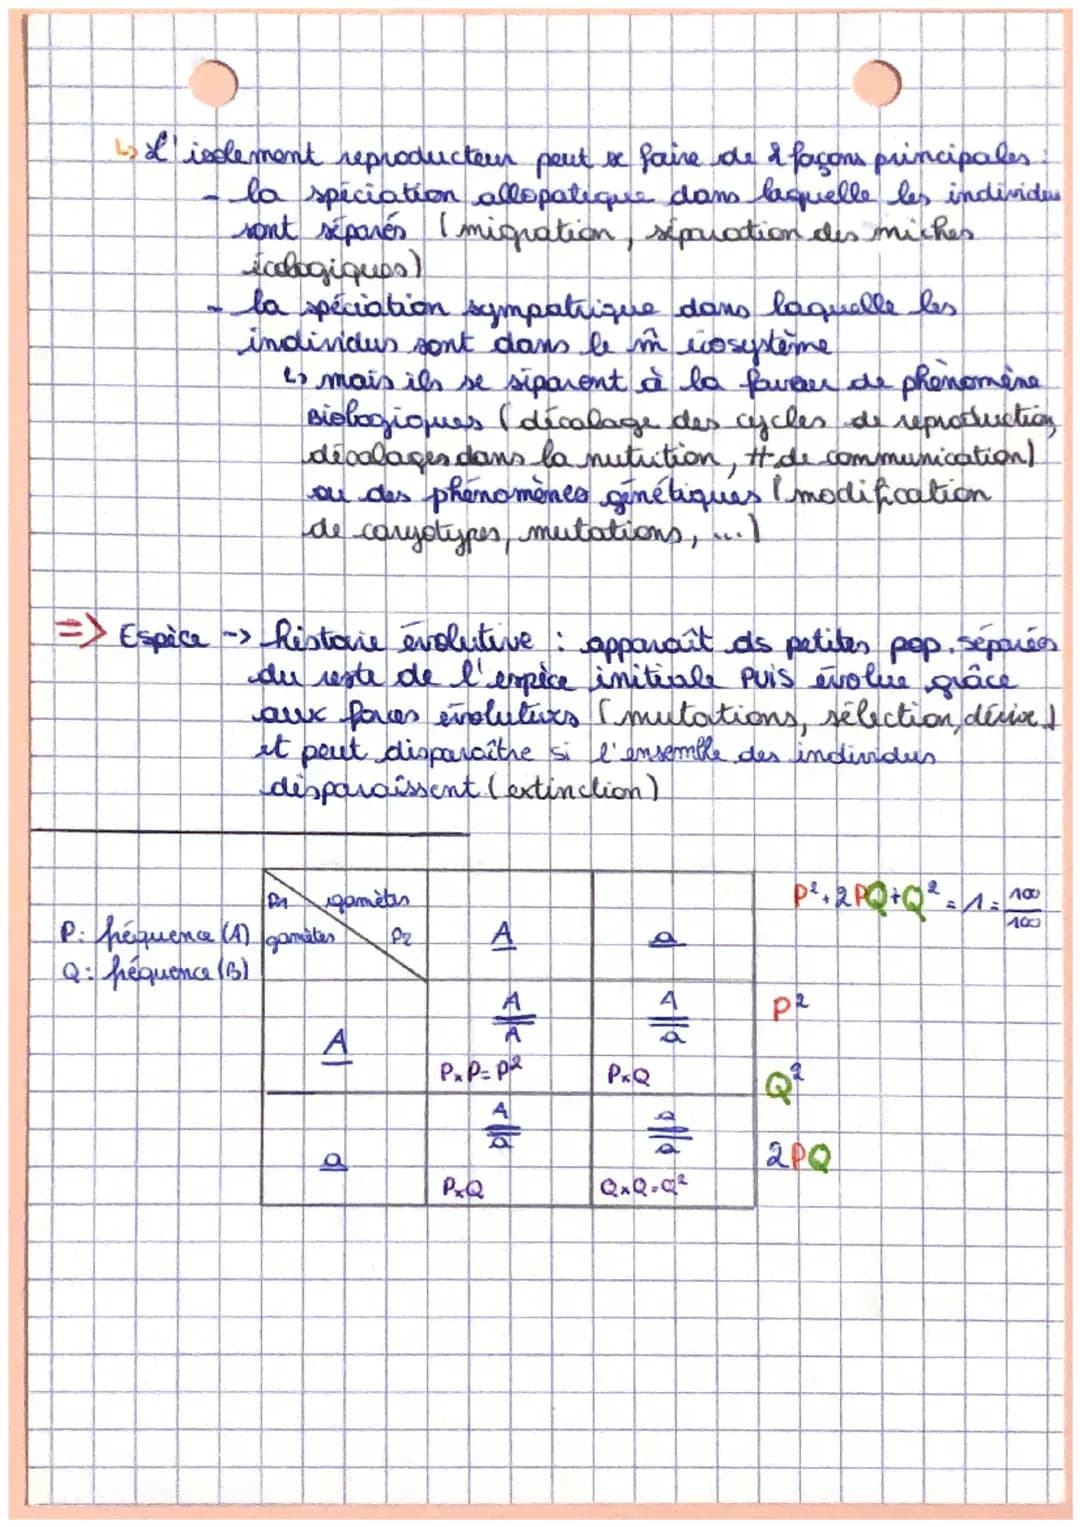 ↳ L'isolement reproducteur peut se faire de 2 façons principales :
- la spéciation allopatique dans laquelle les individus
sont séparés (migration, séparation des niches
écologiques)
- la spéciation sympatrique dans laquelle les
individus sont dans le m̂ écosystème
↳ mais ils se séparent à la faveur de phénomène
Biologiques (décalage des cycles de reproduction,
décalages dans la nutrition, ≠ de communication)
ou des phénomènes génétiques (modification
de caryotypes, mutations, ...)
=> Espèce -> histoire évolutive : apparaît ds petites pop. séparées
du reste de l'espèce initiale PUIS évolue grâce
aux forces évolutives (mutations, sélection, dérive)
et peut disparaître si l'ensemble des individus
disparaissent (extinction)
P²+2PQ+Q² = 1 = 100/100
P: fréquence (A)
Q: fréquence (B)
P1 gamètes
gamètes P2
A a
A A/A A/a
P×P=P² P×Q
a A/a a/a
P×Q Q×Q=Q²
P²
Q²
2PQ